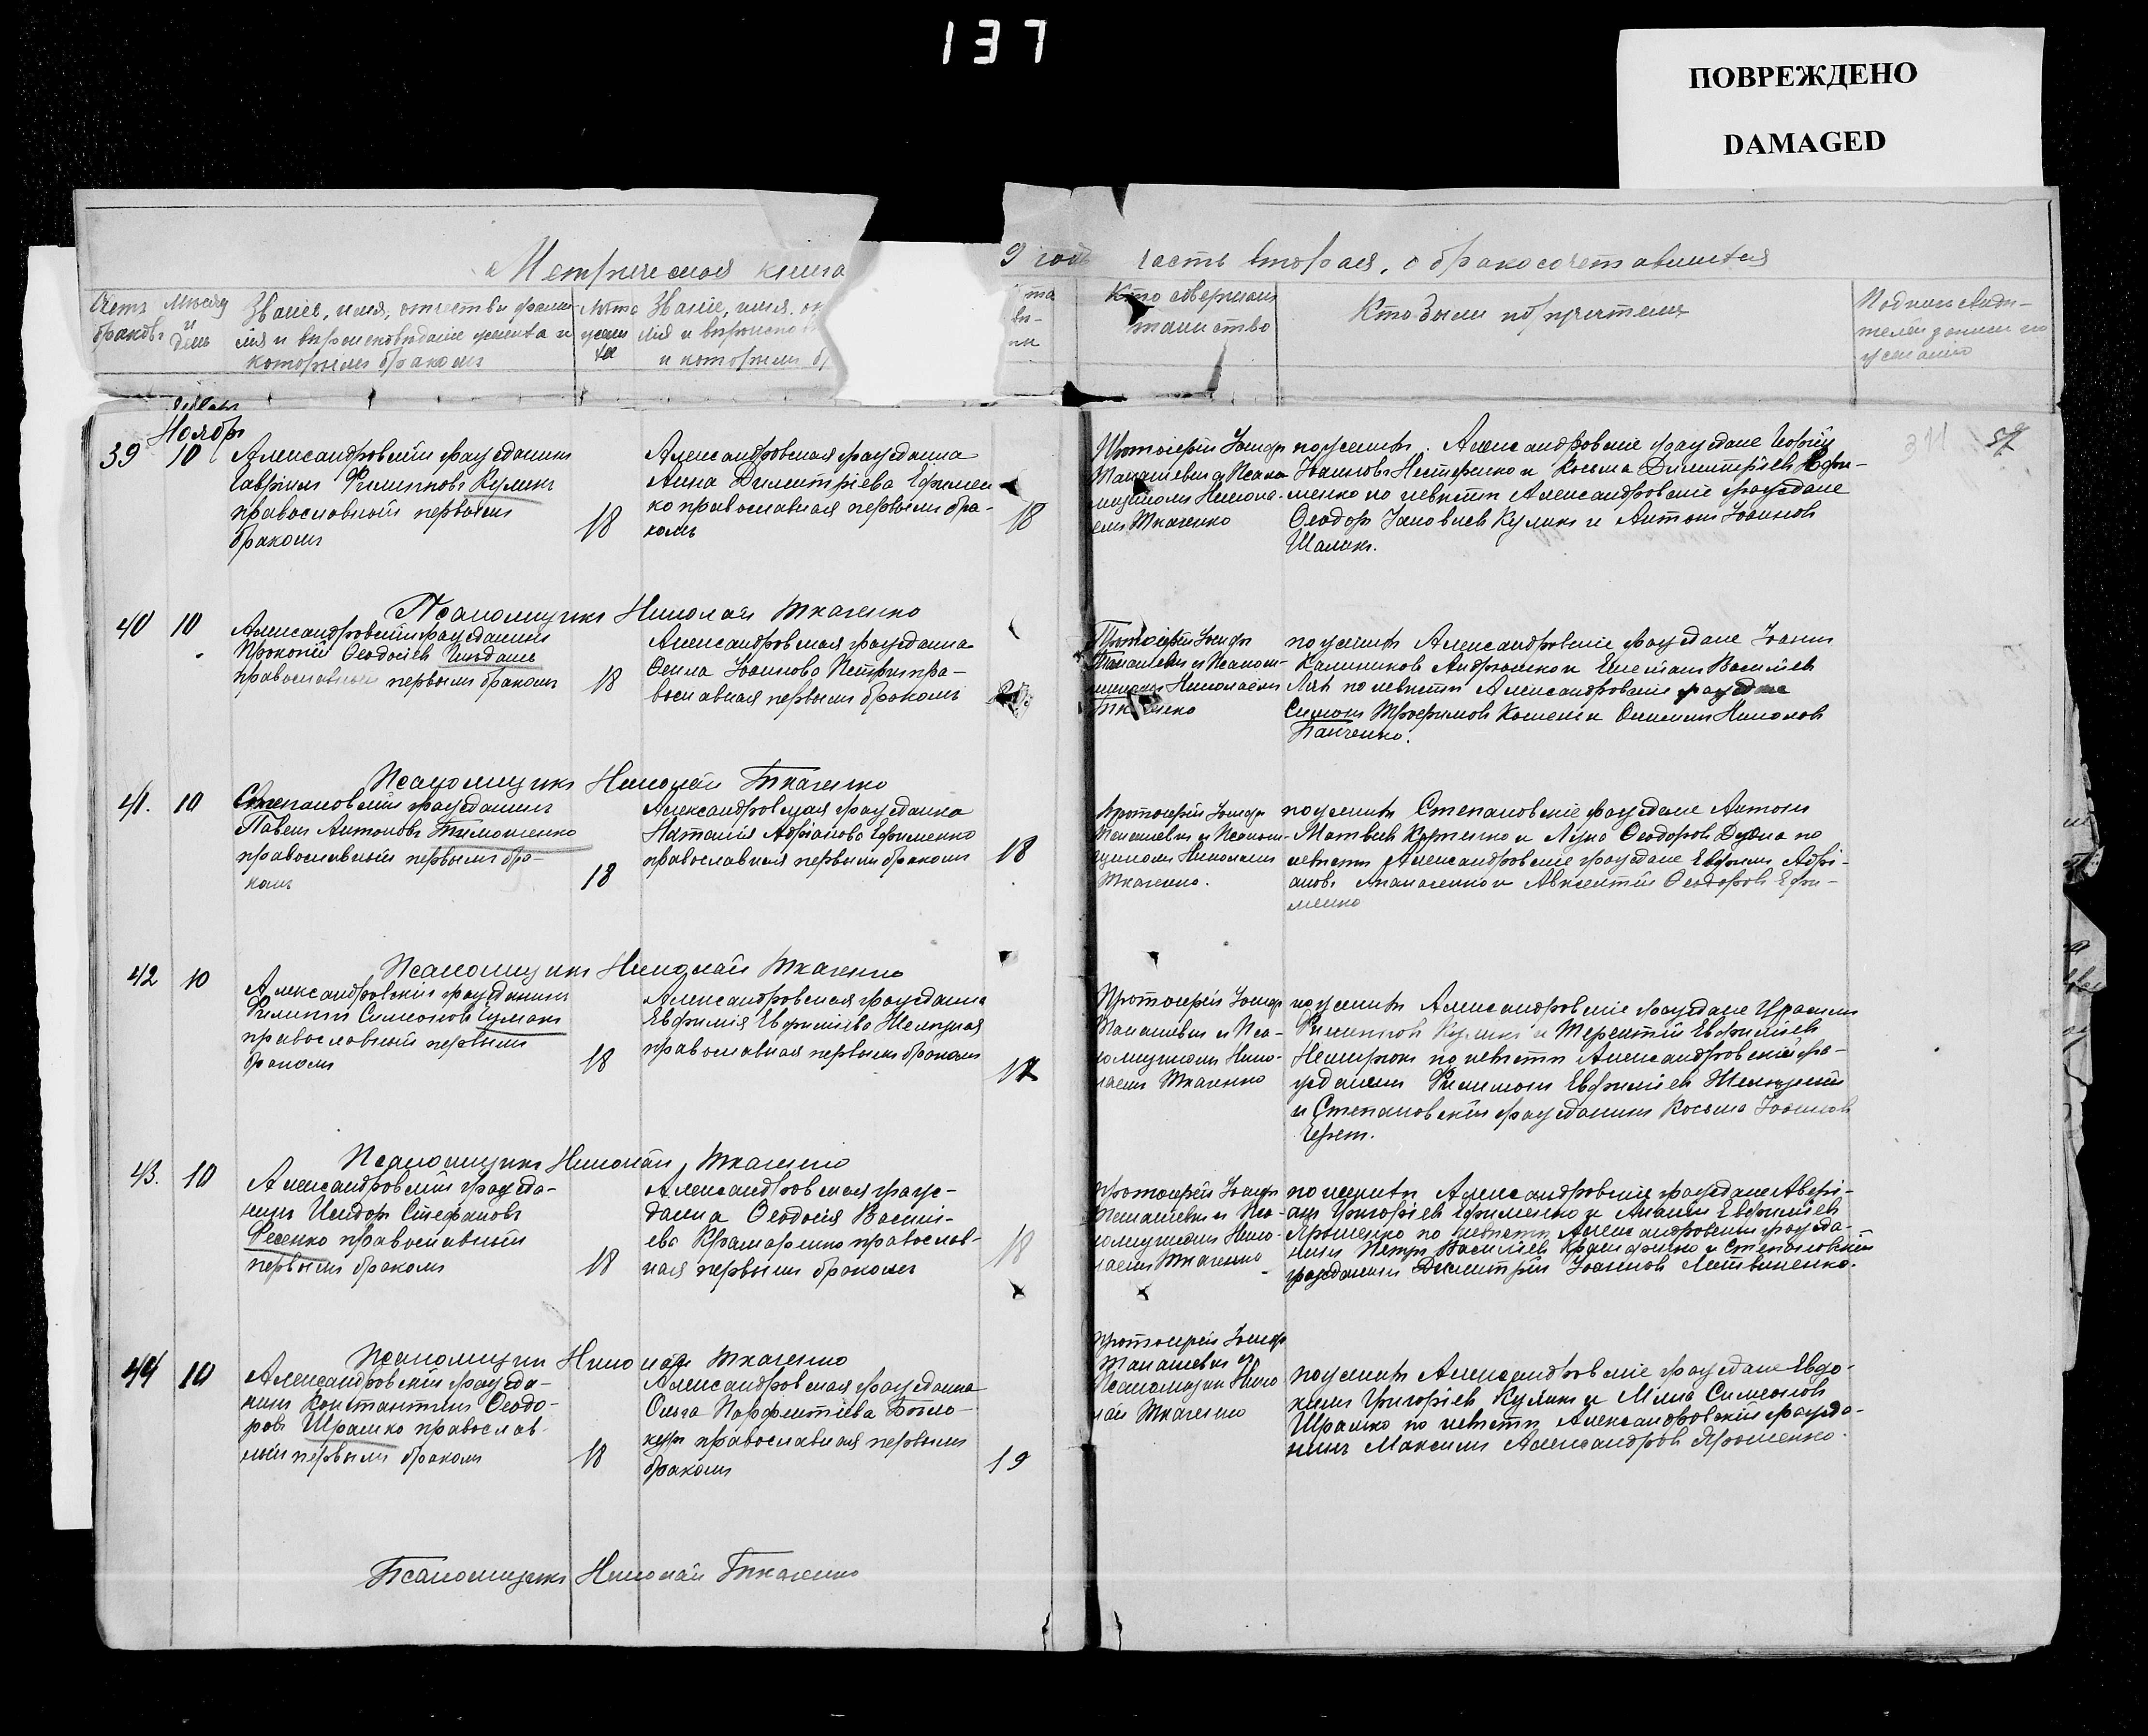 137
ПОВРЕЖДЕНО
DAMAGED
Метрическая книга
9 годъ часть вторая, о бракосочетавшихся
Счетъ браковъ
Мѣсяцъ и день
Званіе, имя, отчество, фами-
лія и вѣроисповѣданіе жениха и
которымъ бракомъ
Лѣта жениха
Званіе, имя, от
лія и вѣроиспо
и которымъ бр
Кто совершалъ
таинство
Кто были поручители
Подпись свиде-
телей записи по
желанію
Ноябрь
39 10
Александровскій гражданинъ
Гавріилъ Филиповъ Куликъ
православный первымъ
бракомъ
18
Александровская гражданка
Анна Димитріева Ефимен
ко православная первымъ бра-
комъ
18
Протоіерей Іосифъ
Танашевичъ Псало
мщикомъ Никола-
емъ Ткаченко
по женихѣ. Александровскіе граждане
Іоанновъ Нестеренко и Косьма Димитріевъ Ефи-
менко по невѣстѣ Александровскіе граждане
Ѳеодоръ Іаковлевъ Куликъ и Антонъ Іоанновъ
Шаликъ.
Псаломщикъ Николай Ткаченко
40 10
Александровскій гражданинъ
Прокопій Ѳеодосіев
православный первымъ бракомъ
18
Александровская гражданка
Іоаннова пра-
вославная первымъ бракомъ
Протоіерей Іосифъ
Танашевичъ и Псалом-
щикомъ Николаемъ
Ткаченко
по женихѣ Александровскіе граждане Іоаннъ
Калиниковъ Андрюшко и Емеліанъ Васильевъ
по невѣстѣ Александровскіе граждане
Симонъ Трофимовъ
Панченко.
Псаломщикъ Николай Ткаченко
41. 10
Степановскій гражданинъ
Павелъ Антоновъ Тимошенко
православный первымъ бра-
комъ
18
Александровская гражданка
Наталія Адріанова Ефименко
православная первымъ бракомъ
18
Протоіерей Іосифъ
Танашевичъ и Псалом-
щикомъ Николаемъ
Ткаченко.
по женихѣ Степановскіе граждане Антонъ
Матвѣевъ и Лука Ѳеодоровъ по
невѣстѣ Александровскіе граждане Евфимъ Адрі-
ановъ и Авксентій Ѳеодоровъ Ефи-
менко
Псаломщикъ Николай Ткаченко
42 10
Александровскій гражданинъ
Филиппъ Симеоновъ Чумакъ
православный первымъ
бракомъ
18
Александровская гражданка
Евфимія Евфиміева
православная первымъ бракомъ
17
Протоіерей Іосифъ
Танашевичъ и Пса-
ломщикомъ Нико-
лаемъ Ткаченко
по женихѣ Александровскіе граждане
Филиповъ Куликъ и Терентій Евфиміевъ
по невѣстѣ Александровскій гра-
жданинъ Филимонъ Евфиміевъ
и Степановскій гражданинъ Косьма Іоанновъ
Псаломщикъ Николай Ткаченко
43. 10
Александровскій гражда-
нинъ Исидоръ Стефановъ
Фесенко православный
первымъ бракомъ
18
Александровская граж-
данка Ѳеодосія Василі-
ева Крамаренко православ-
ная первымъ бракомъ
18
Протоіерей Іосифъ
Танашевичъ и Пса-
ломщикомъ Нико-
лаемъ Ткаченко
по женихѣ Александровскіе граждане Авері-
анъ Григоріевъ Ефименко и Ананій Евфиміевъ
Ярошенко по невѣстѣ Александровскій гражда-
нинъ Петръ Василіевъ Крамаренко и Степановскій
гражданинъ Димитрій Іоанновъ Литвиненко.
Псаломщикъ Николай Ткаченко
44 10
Александровскій гражда-
нинъ Константинъ Ѳеодо-
ровъ Шрамко православ-
ный первымъ бракомъ
18
Александровская гражданка
Ольга Парфентіева Бѣло-
куръ православная первымъ
бракомъ
19
Протоіерей Іосифъ
Танашевичъ и
Псаломщик Нико
лай Ткаченко
по женихѣ Александровскіе граждане Евдо-
кимъ Григоріевъ Куликъ и Симеоновъ
Шрамко по невѣстѣ Александровскій гражда-
нинъ Максимъ Александровъ Ярошенко.
Псаломщикъ Николай Ткаченко